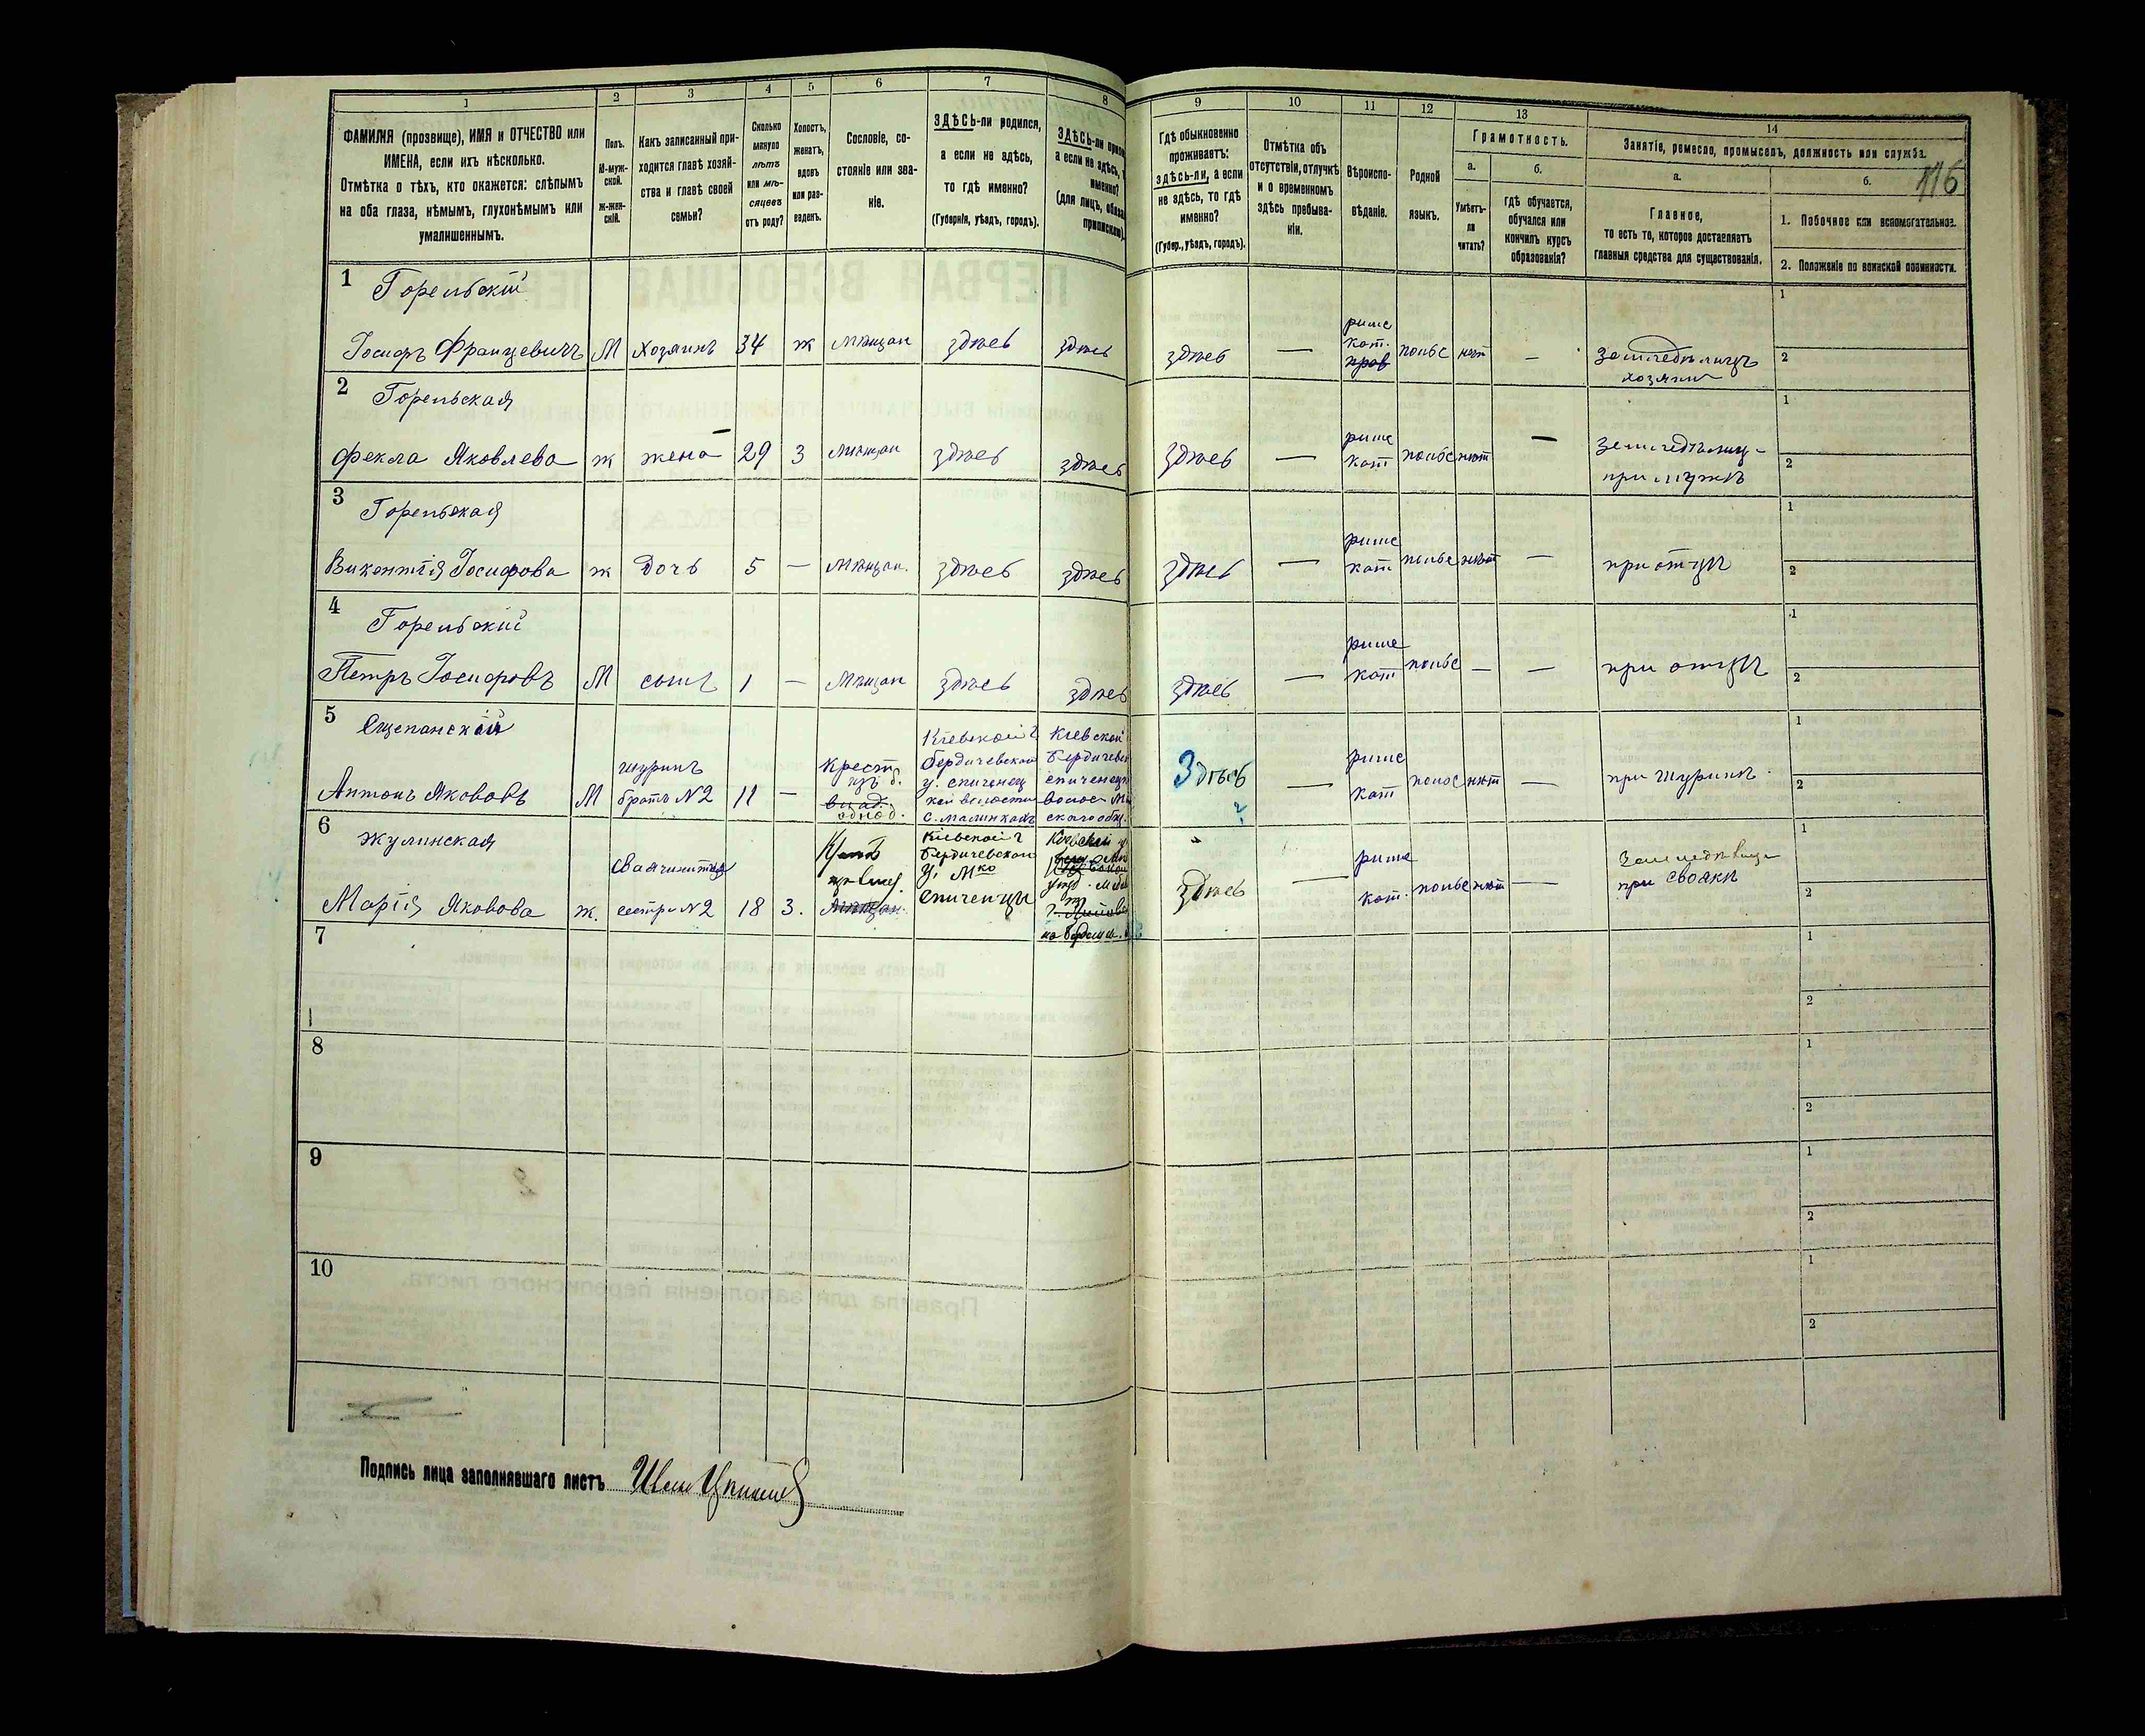 1
ФАМИЛІЯ (прозвище), ИМЯ и ОТЧЕСТВО или
ИМЕНА, если ихъ нѣсколько.
Отмѣтка о тѣхъ, кто окажется: слѣпымъ
на оба глаза, нѣмымъ, глухонѣмымъ или
умалишеннымъ.
2
Полъ.
М-муж-
ской.
ж-жен-
скій.
3
Какъ записанный при-
ходится главѣ хозяй-
ства и главѣ своей
семьи?
4
Сколько
минуло
лѣтъ
или мѣ-
сяцевъ
отъ роду?
5
Холостъ,
женатъ,
вдовъ
или раз-
веденъ.
6
Сословіе, со-
стояніе или зва-
ніе.
7
ЗДѢСЬ-ли родился,
а если не здѣсь,
то гдѣ именно?
(Губернія, уѣздъ, городъ).
8
ЗДѢСЬ-ли
а если не здѣсь,
именно?
(для лицъ,
9
Гдѣ обыкновенно
проживаетъ:
здѣсь-ли, а если
не здѣсь, то гдѣ
именно?
(Губер., уѣздъ, городъ).
10
Отмѣтка объ
отсутствіи, отлучкѣ
и о временномъ
здѣсь пребыва-
ніи.
11
Вѣроиспо-
вѣданіе.
12
Родной
языкъ.
13
Грамотность.
а.
Умѣетъ-
ли
читать?
б.
Гдѣ обучается,
обучался или
кончилъ курсъ
образованія?
14
Занятіе, ремесло, промыселъ, должность или служба.
а.
Главное,
то есть то, которое доставляетъ
главныя средства для существованія.
б.
116
1. Побочное или вспомогательное.
2. Положеніе по воинской повинности.
1
Горельскій
Іосифъ Францевичъ М хозяинъ 34 ж мѣщан здѣсь здѣсь здѣсь — римс кат. польс нѣт — земледѣлицъ
хозяинъ
1
2
2
Горельская
Фекла Яковлева ж жена 29 з мѣщан здѣсь здѣсь здѣсь — римс кат польс нѣт — земледѣлиц-
при мужѣ
1
2
3
Горельская
Викентія Іосифова ж дочь 5 — мѣщан. здѣсь здѣсь здѣсь — римс кат польс нѣт — при отцѣ
1
2
4
Горельскій
Петръ Іосифовъ М сынъ 1 — мѣщан здѣсь здѣсь здѣсь — римс кат польс — — при отцѣ
1
2
5
Антонъ Якововъ М
шуринъ
братъ №2 11 —
крест
изъ б.
однод.
Кіевской г
Бердичевской
у. спиченец
кой волости
Кіевской
Бердичевс
спиченец
волос
Здѣсь
?
— римс кат польс нѣт — при шуринѣ
1
2
6
Жулинская
Марія Яковова ж.
свояченица
сестра №2 18 з.
мѣщан.
Кіевской г
Бердичевской
у. мко
спиченцы
здѣсь — римс кат. польс нѣт —
при своякѣ
1
2
7
1
2
8
1
2
9
1
2
10
1
2
Подпись лица заполнявшаго листъ